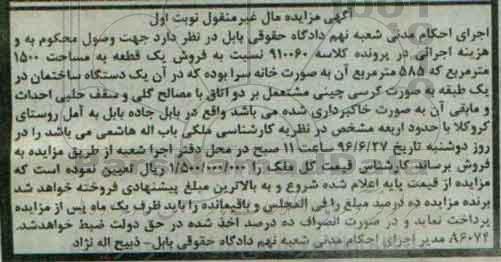 آگهی مزایده مال غیرمنقول نوبت اول
اجرای احکام مدنی شعبه نهم دادگاه حقوقی بابل در نظر دارد جهت وصول محکوم به و
هزینه اجرائی در پرونده کلاسه ۹۱۰۰۶۰ نسبت به فروش یک قطعه به مساحت ۱۵۰۰
مترمربع که ۵۸۵ مترمربع آن به صورت خانه سرا بوده که در آن یک دستگاه ساختمان در
یک طبقه به صورت کرسی چینی مشتمل بر دو اتاق با مصالح گلی و سقف حلبی احداث
و مابقی آن به صورت خاکبرداری شده می باشد واقع در بابل جاده بابل به آمل روستای
کروکلا با حدود اربعه مشخص در نظریه کارشناسی ملکی باب اله هاشمی می باشد را در
روز دوشنبه تاریخ ۹۶/۶/۲۷ ساعت ۱۱ صبح در محل دفتر اجرا شعبه از طریق مزایده به
فروش برساند کارشناس قیمت کل ملک را ۱/۵۰۰/۰۰۰/۰۰۰ ریال تعیین نموده است که
مزایده از قیمت پایه اعلام شده شروع و به بالاترین مبلغ پیشنهادی فروخته خواهد شد
برنده مزایده ده درصد مبلغ را فی المجلس و باقیمانده را باید ظرف یک ماه پس از مزایده
پرداخت نماید و در صورت انصراف ده درصد اخذ شده در حق دولت ضبط خواهدشد.
۸۶۰۷۴ مدیر اجرای احکام مدنی شعبه نهم دادگاه حقوقی بابل- ذبیح اله نژاد